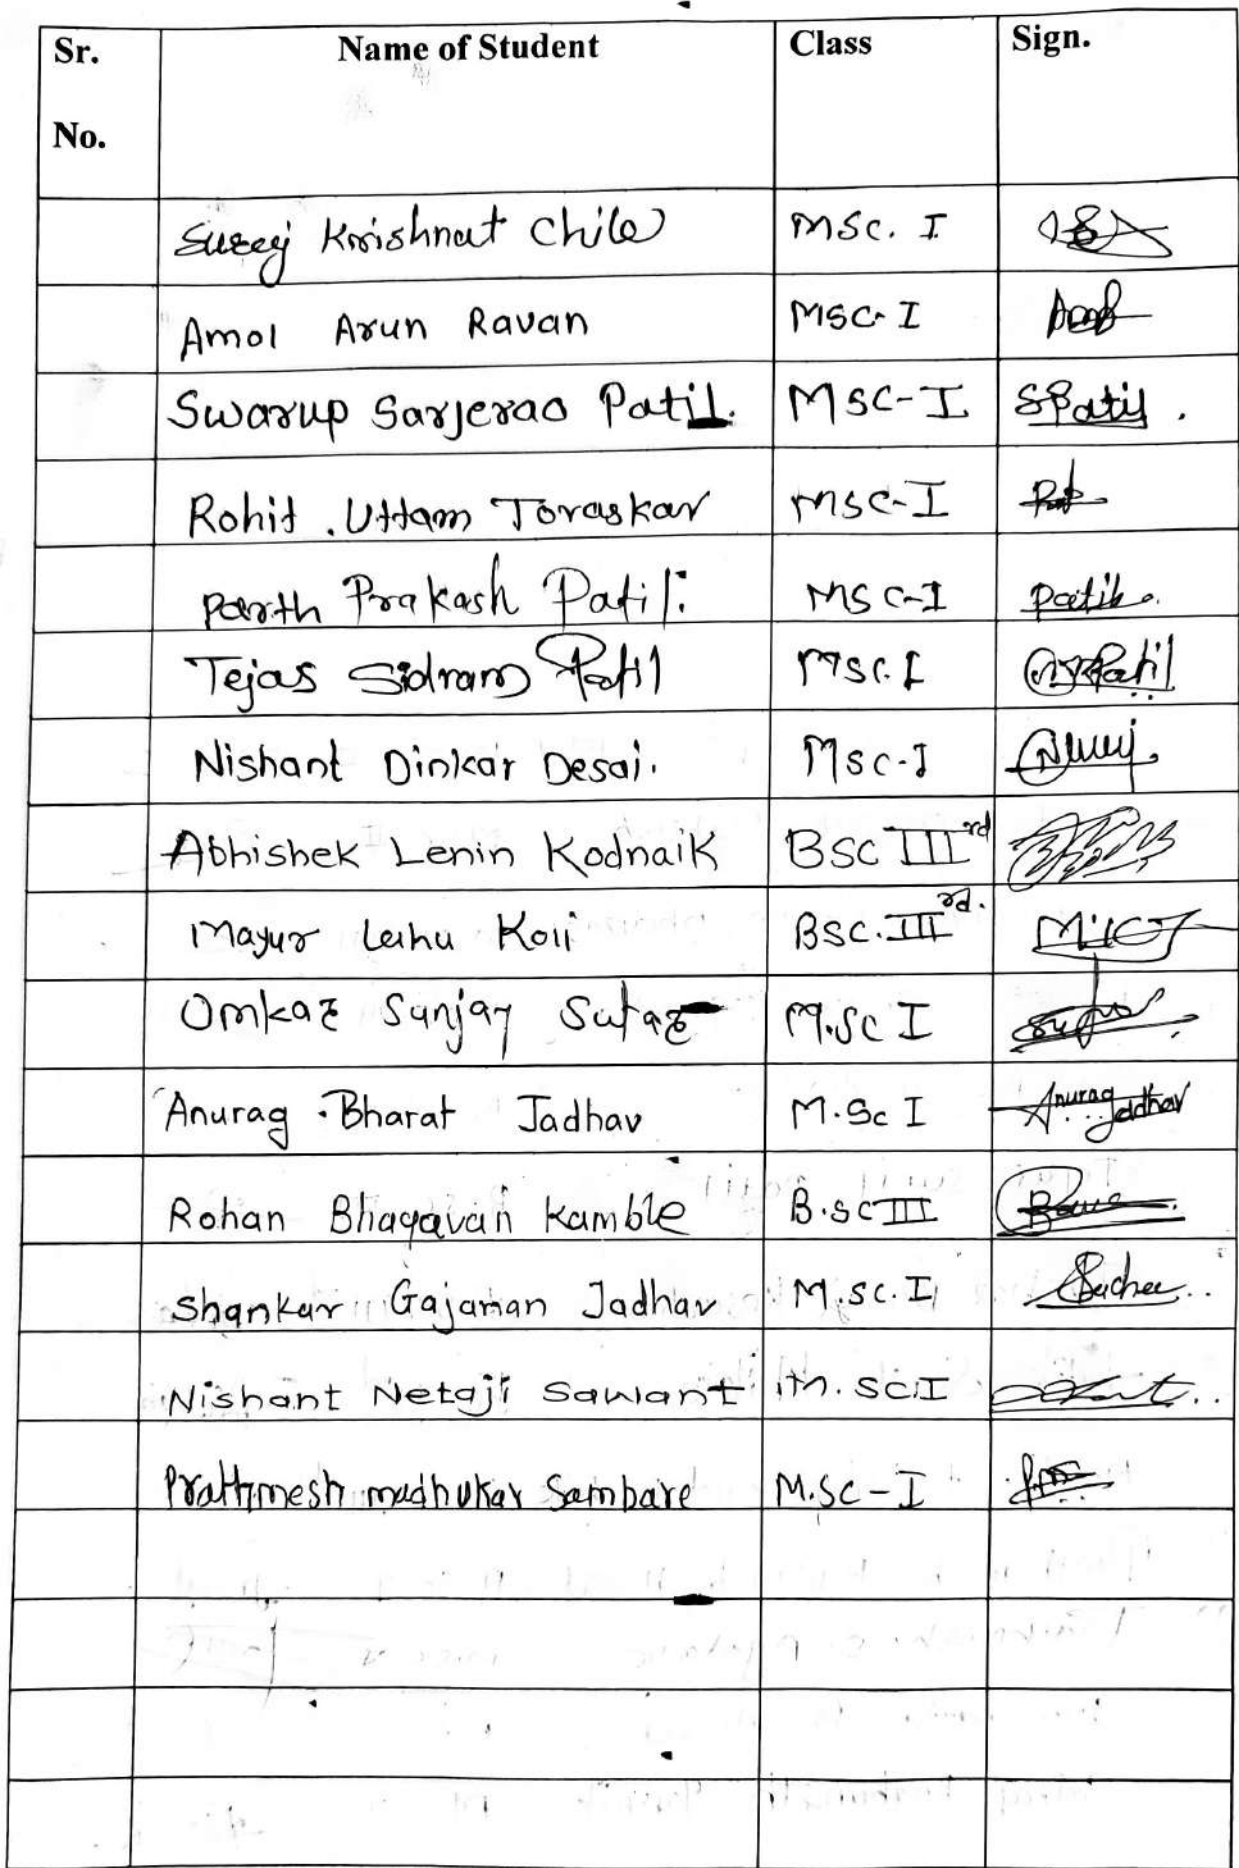 Sr. No. Name of Student Class Sign.
Suraj Krishnat Chile MSC. I
Amol Arun Ravan MSC-I
Swarup Sarjerao Patil. MSC-I SPatil.
Rohit . Uttam Toraskar MSC-I
Parth Prakash Patil. MSC-I Patil
Tejas Sidram Patil MSC. I Patil
Nishant Dinkar Desai. MSC-I
Abhishek Lenin Kodnaik BSC IIIrd
Mayur Lahu Koli BSC. IIIrd.
Omkar Sanjay Sutar M.SC I
Anurag .Bharat Jadhav M.Sc I Anurag Jadhav
Rohan Bhagavan Kamble B.SC III
Shankar Gajanan Jadhav M.SC. I
Nishant Netaji Sawant M.SC.I
Prathmesh madhukar Sambare M.SC-I